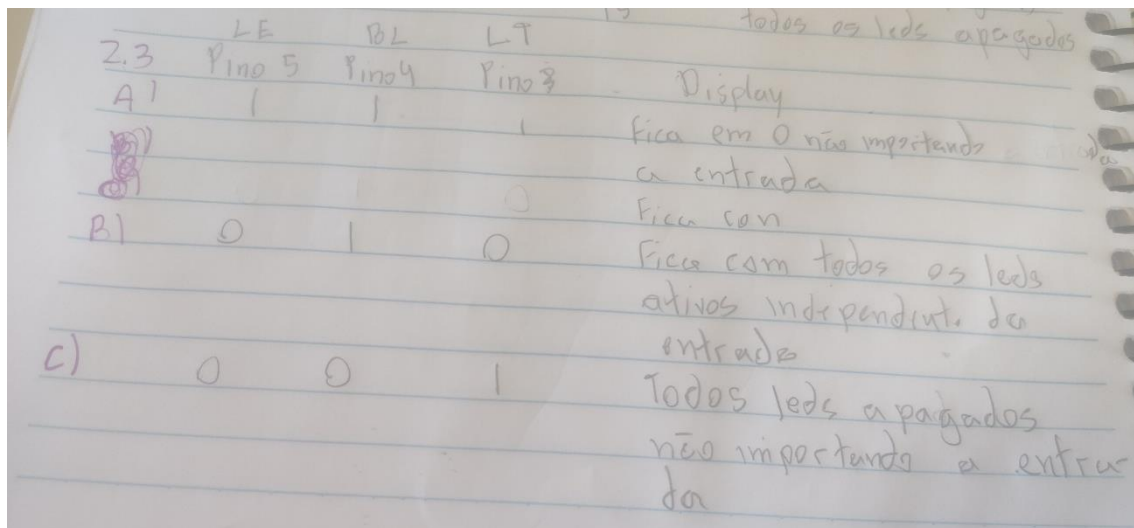 todos os leds apagados
LE BL LT
2.3 Pino 5 Pino 4 Pino 3 Display
A) 1 1 1 Fica em 0 não importando
a entrada
Fica con
B) 0 1 0 Fica com todos os leds
ativos independent. da
entrada
C) 0 0 1 Todos leds apagados
não importando a entra-
da